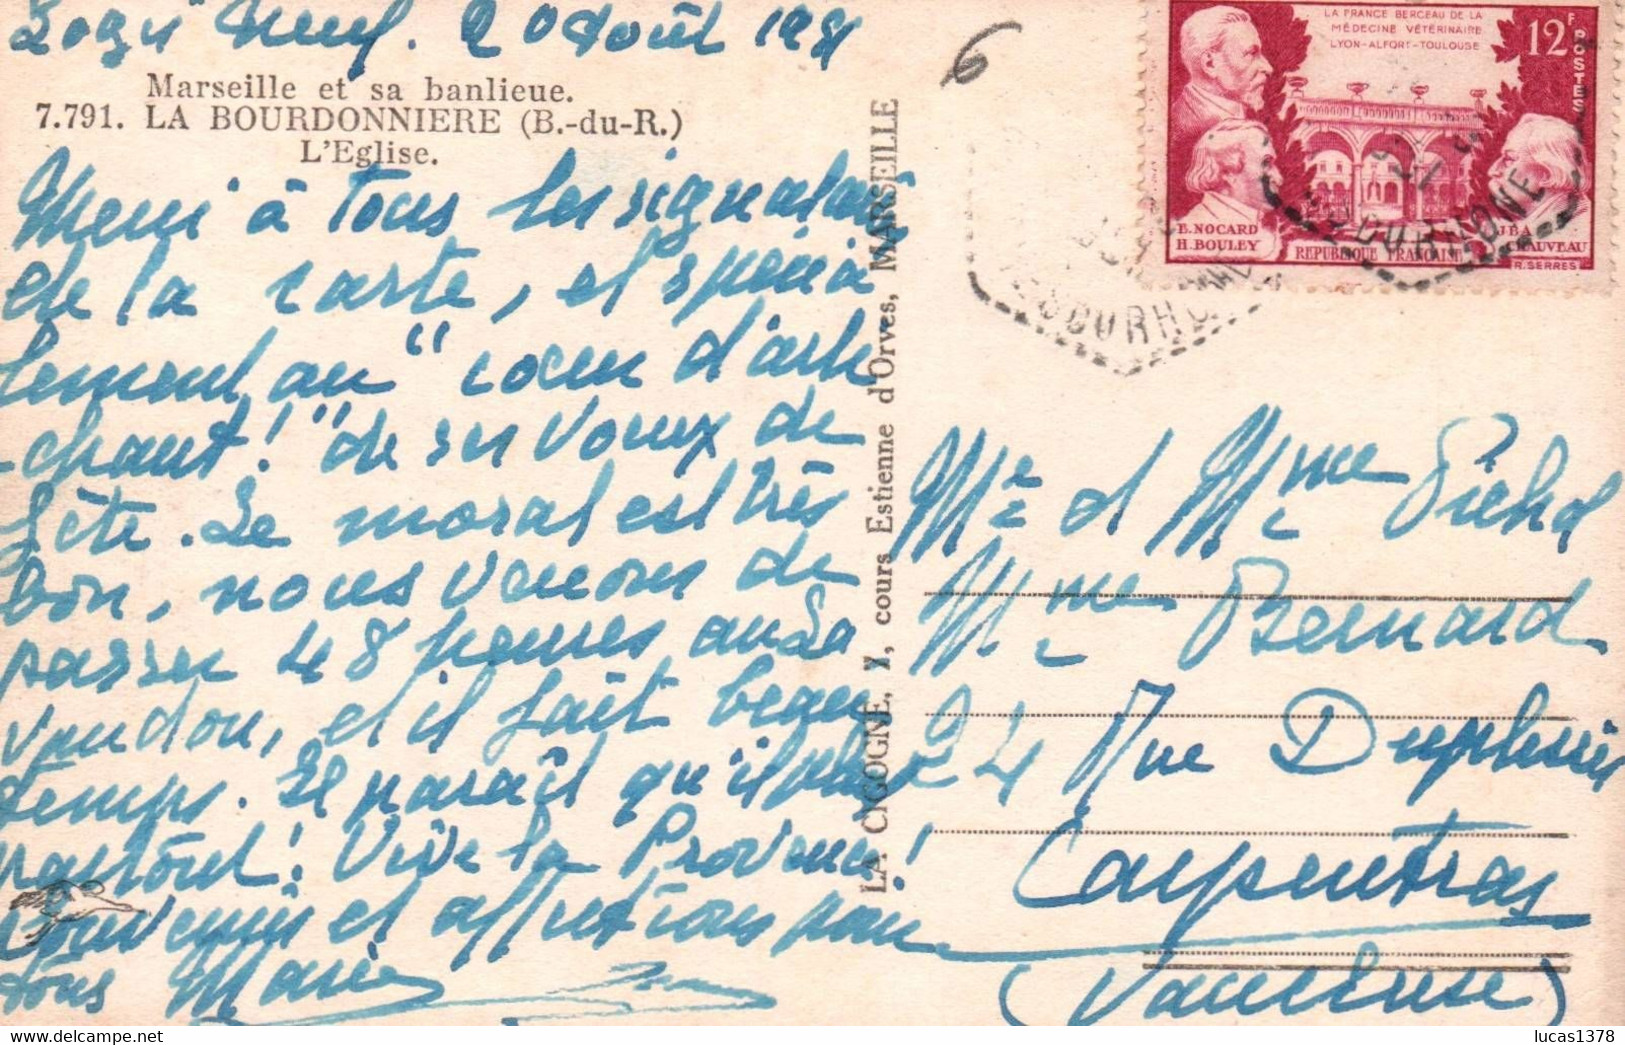 Logis Neuf. 20 Août 1951
Marseille et sa banlieue.
7.791. LA BOURDONNIERE (B.-du-R.)
L'Eglise.
Merci à tous les signataires
de la carte, et spécia
lement au "coeur d'arti
chaut!" de ses voeux de
fête. Le moral est très
bon, nous venons de
passer 48 heures au La
vandou, et il fait beau
temps. Il paraît qu'il pleut
partout! Vive la Provence!
Souvenirs et affections pour
tous Marie
LA CIGOGNE, 7, cours Estienne d'Orves, MARSEILLE
6
LA FRANCE BERCEAU DE LA
MÉDECINE VÉTÉRINAIRE
LYON-ALFORT-TOULOUSE
12F
POSTES
E. NOCARD
H. BOULEY
J.B.A.
CHAUVEAU
REPUBLIQUE FRANÇAISE
R. SERRES
Mr et Mme
Mme Bernard
24 Rue Duplessis
Carpentras
(Vaucluse)
lucas1378